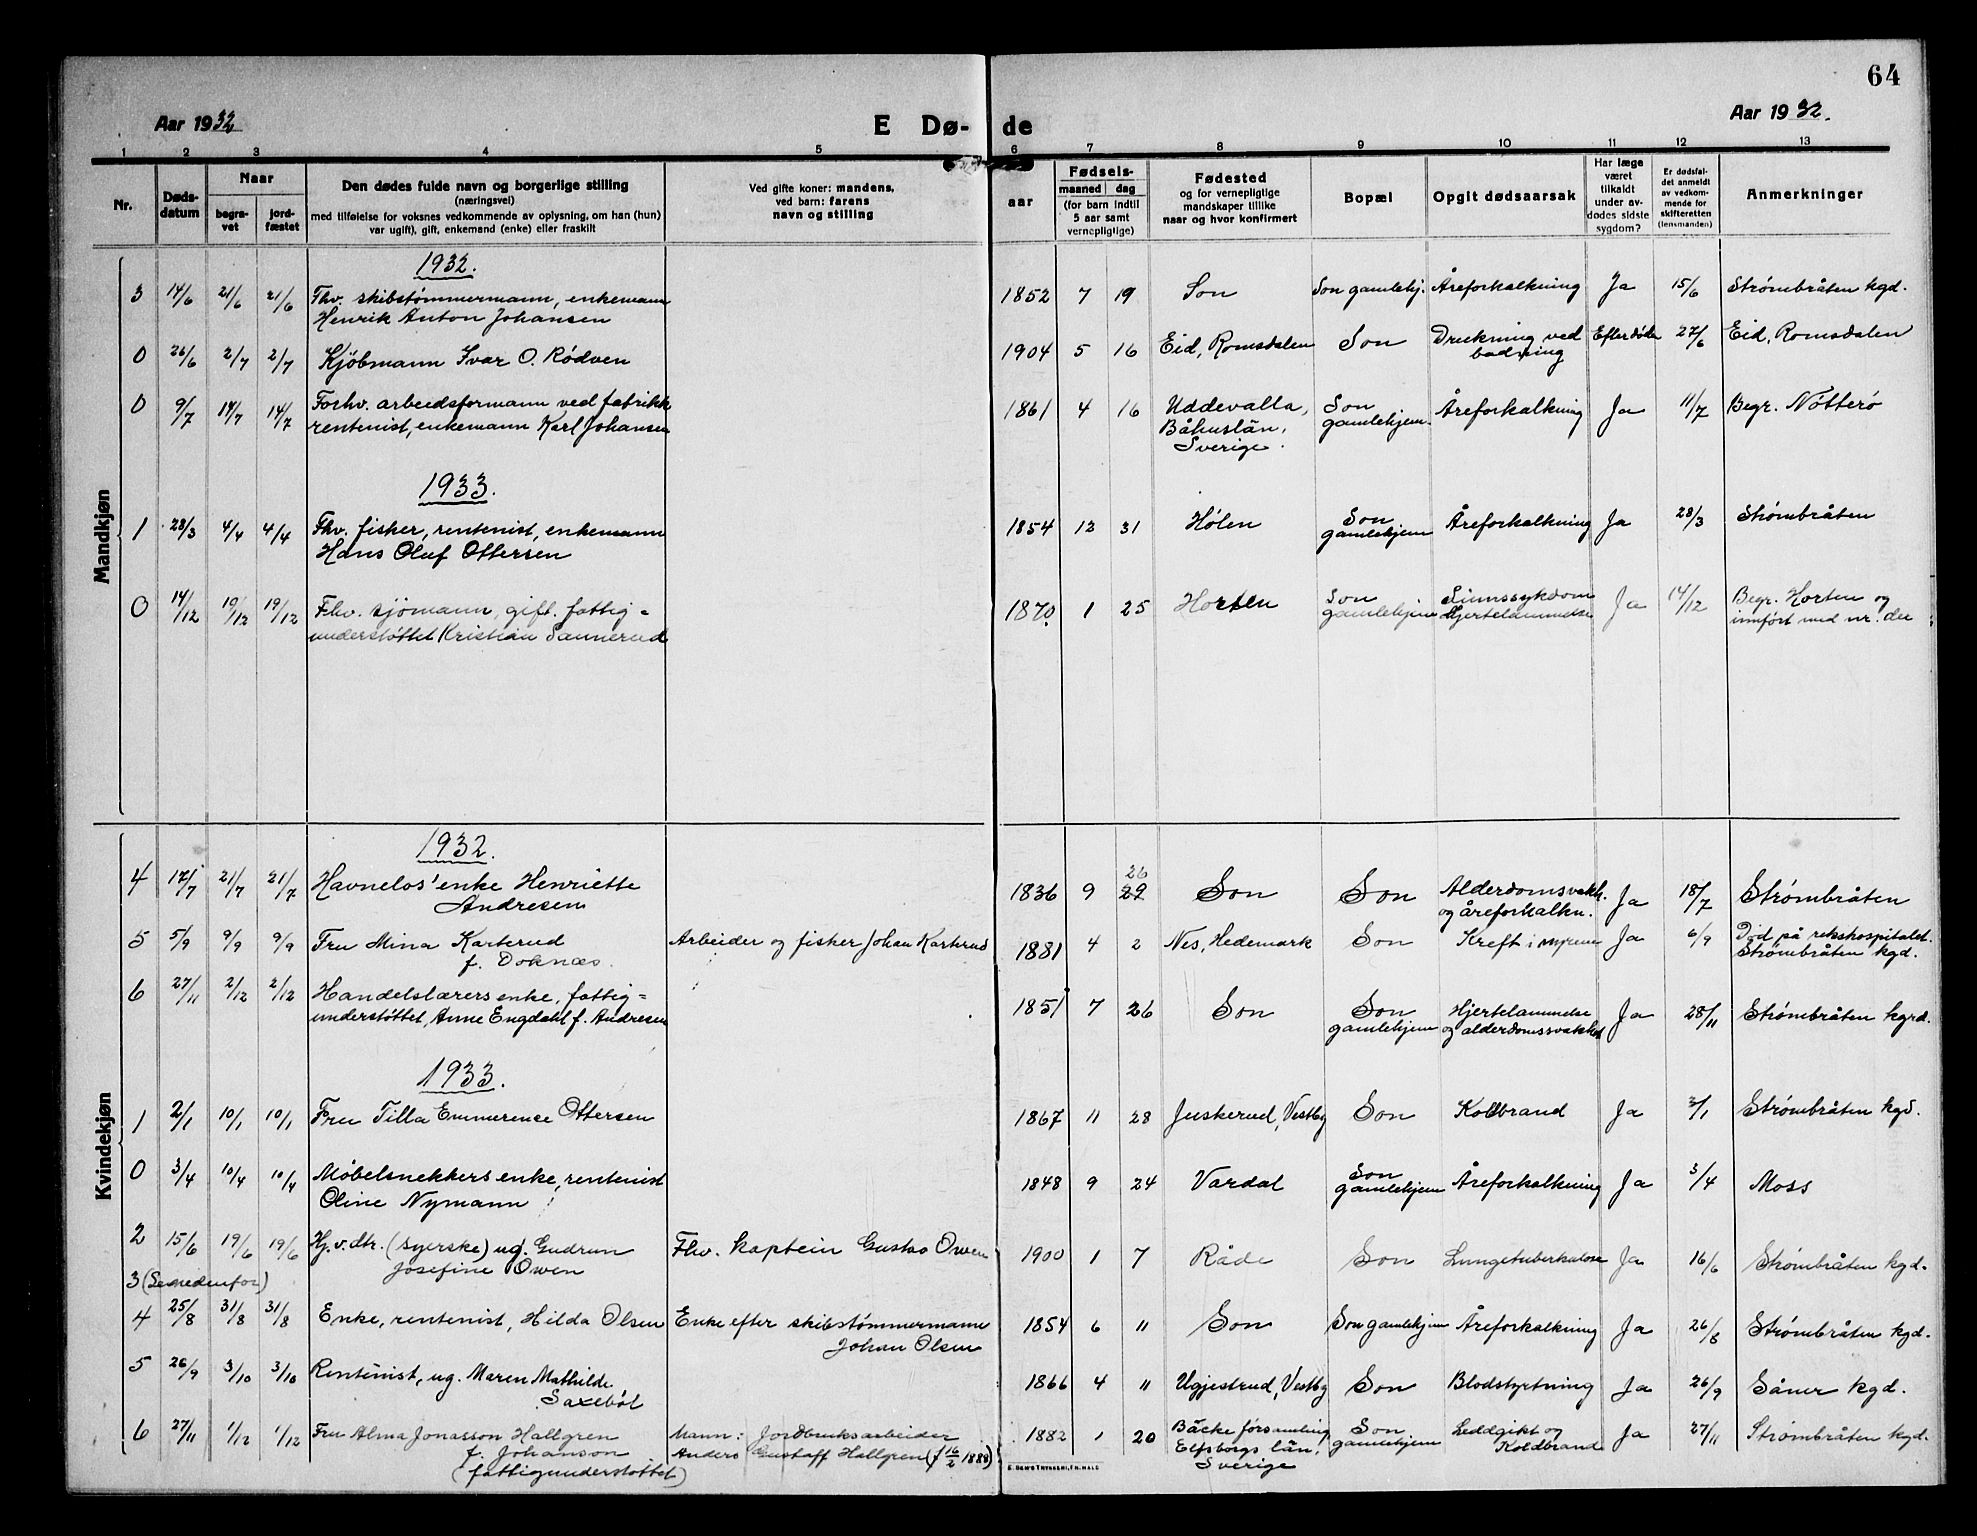 64
Aar 1932
E Dø- de
Aar 1932.
1 2 3 4 5 6 7 8 9 10 11 12 13
Nr.
Døds-
datum
Naar
begra-
vet
jord-
fæstet
Den dødes fulde navn og borgerlige stilling
(næringsvei)
med tilføielse for voksnes vedkommende av oplysning, om han (hun)
var ugift), gift, enkemand (enke) eller fraskilt
Ved gifte koner: mandens,
ved barn: farens
navn og stilling
aar
Fødsels-
maaned dag
(for barn indtil
5 aar samt
vernepligtige)
Fødested
og for vernepligtige
mandskaper tillike
naar og hvor konfirmert
Bopæl
Opgit dødsaarsak
Har læge
været
tilkaldt
under av-
dødes sidste
sygdom?
Er dødsfal-
det anmeldt
av vedkom-
mende for
skifteretten
(lensmanden)
Anmerkninger
Mandkjøn
1932.
3 14/6 21/6 21/6 Fhv. skibstømmermann, enkemann 1852 7 19 Son Son gamlehj. Åreforkalkning Ja 15/6 Strømbråten kgd.
Henrik Anton Johansen
0 26/6 2/7 2/7 Kjöbmann Ivar O. Rödven 1904 5 16 Eid, Romsdalen Son Drukning ved Efter døde 27/6 Eid, Romsdalen
badning
0 9/7 14/7 14/7 Forhv. arbeidsformann ved fabrikk 1861 4 16 Uddevalla, Son Åreforkalkning Ja 11/7 Begr. Nötterö
rentenist, enkemann Karl Johansen Båhuslän, gamlehjem.
Sverige.
1933.
1 28/3 4/4 4/4 Fhv. fisker, rentenist, enkemann 1854 12 31 Hølen Son Åreforkalkning Ja 28/3 Strømbråten
Hans Oluf Ottersen gamlehjem
0 14/12 19/12 19/12 Fhv. sjömann, gift, fattig= 1870 1 25 Horten Son Sinnssykdom Ja 14/12 Begr. Horten og
understøttet Kristian Sannerud gamlehjem Hjertelammelse innfört med nr. der
Kvindekjøn
1932.
26
4 17/7 21/7 21/7 Havnelos' enke Henriette 1836 9 29 Son Son Alderdomsvakh. Ja 18/7 Strømbråten
Andresen og åreforkalkn.
5 5/9 9/9 9/9 Fru Mina Karterud Arbeider og fisker Johan Karterud 1881 4 2 Nes, Hedemark Son Kreft i nyrene Ja 6/9 Död på rikshospitalet.
f. Doknæs. Strømbråten kgd.
6 27/11 2/12 2/12 Handelslærers enke, fattig= 1851 7 26 Son Son Hjertelammelse Ja 28/11 Strømbråten kgrd.
understøttet, Anne Engdahl f. Andresen gamlehjem og alderdomssvakhet
1933.
1 2/1 10/1 10/1 Fru Tilla Emmerense Ottersen 1867 11 28 Juskerud, Vestby Son Koldbrand Ja 3/1 Strømbråten kgd.
0 3/4 10/4 10/4 Møbelsnekkers enke, rentenist 1848 9 24 Vardal Son Åreforkalkning Ja 3/4 Moss
Oline Nymann gamlehjem
2 15/6 19/6 19/6 Hj.v. dtr. (syerske) ug. Gudrun Fhv. kaptein Gustav Owen 1900 1 7 Råde Son Lungetuberkulose Ja 16/6 Strømbråten kgd.
Josefine Owen
3 (Se nedenfor)
4 25/8 31/8 31/8 Enke, rentenist, Hilda Olsen Enke efter skibstømmermann 1854 6 11 Son Son gamlehjem Åreforkalkning Ja 26/8 Strømbråten kgd.
Johan Olsen
5 26/9 3/10 3/10 Rentenist, ug. Maren Mathilde 1866 4 11 Ugjestrud, Vestby Son Blodstyrtning Ja 26/9 Såner kgd.
Saxeböl
6 27/11 1/12 1/12 Fru Alma Jonasson Hallgren Mann: Jordbruksarbeider 1882 1 20 Bäcke församling Son Leddgikt og Ja 27/11 Strømbråten kgd.
f. Johanson Anders Gustaff Hallgren (f 16/2 1888) Elfsborgs län, gamlehjem Koldbrand
(fattigunderstøttet) Sverige